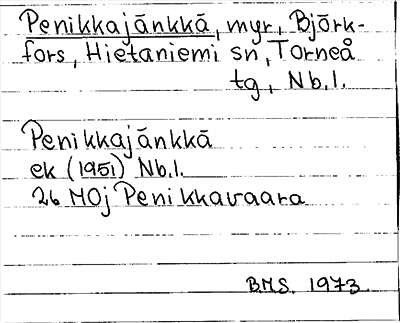 Penikkajänkkä, myr, Björk-
fors, Hietaniemi sn, Torneå
tg, Nb.l.
Penikkajänkkä
ek (1951) Nb.l.
26 MOj Penikkavaara
BMS. 1973.